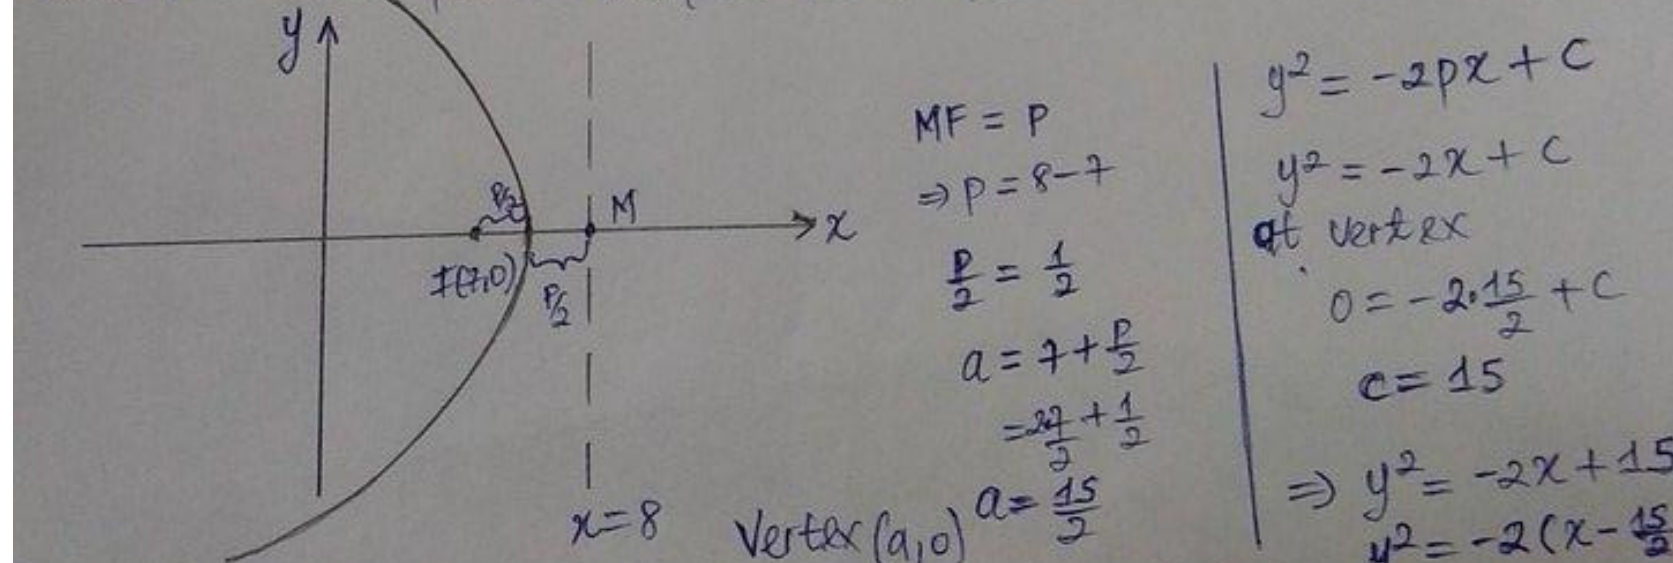 y
P/2
M
x
F(7,0)
P/2
x=8
Vertex (a,0)
MF = P
⇒ P = 8-7
P/2 = 1/2
a = 7 + P/2
= 2·7/2 + 1/2
a = 15/2
y² = -2px + C
y² = -2x + C
at vertex
0 = -2·15/2 + C
c = 15
⇒ y² = -2x + 15
y² = -2(x - 15/2